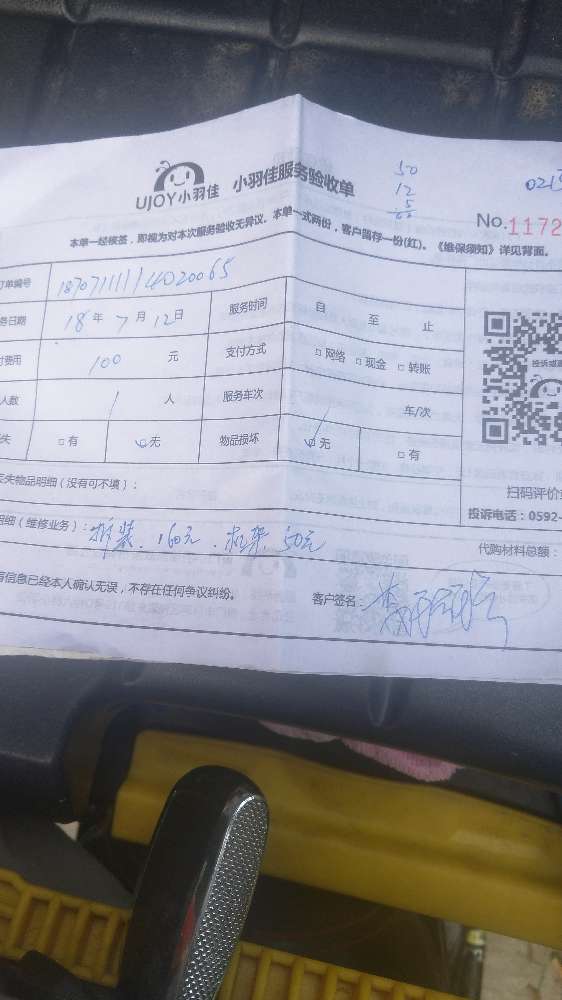 50
12
5
UJOY小羽佳 小羽佳服务验收单
No.1172
本单一经核签，即视为对本次服务验收无异议。本单一式两份，客户留存一份(红)。《维保须知》详见背面。
单编号
务日期 18年7月12日 服务时间 自 至 止
费用 100 元 支付方式 □网络 □现金 □转账
人数 1 人 服务车次 车/次
失 □有 □无 物品损坏 □无 □有
失物品明细（没有可不填）：
扫码评价
投诉电话：0592-
明细（维修业务）：拆装、160元、支架50元
代购材料总额：
有信息已经本人确认无误，不存在任何争议纠纷。 客户签名：